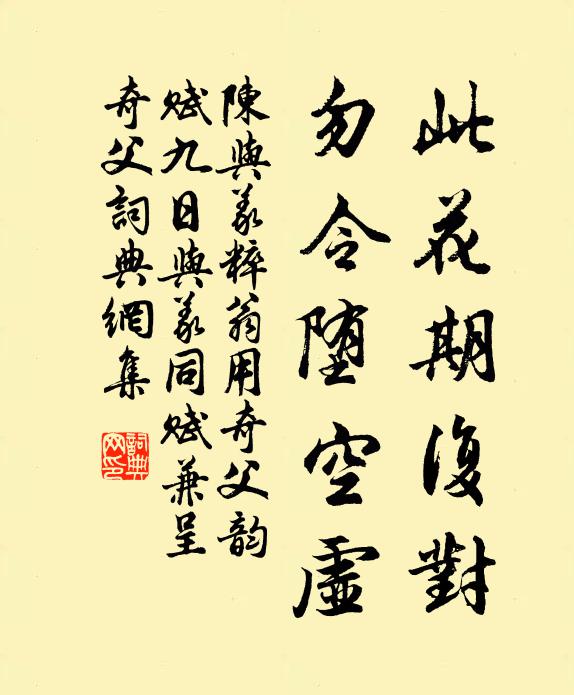 此花期復對
勿令堕空虛
陳與義粹翁用奇父韵
賦九日與義同賦兼呈
奇父詞典網集
詞典
网印